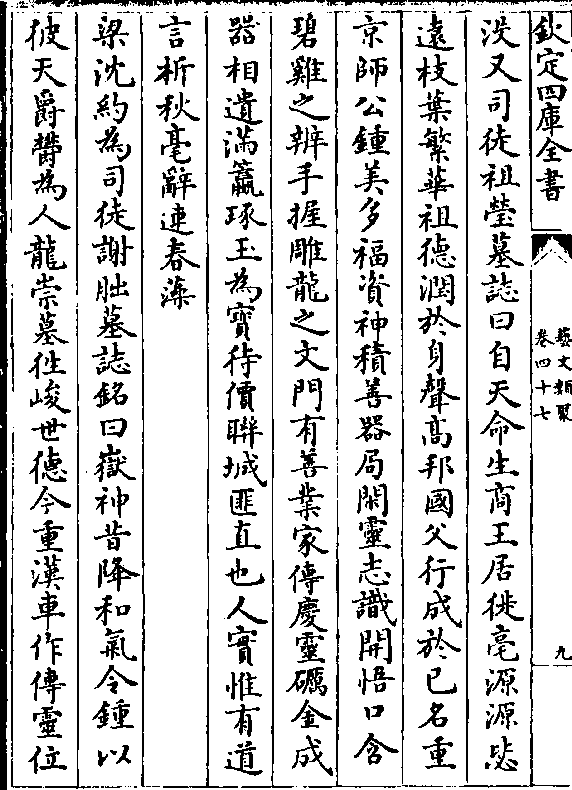 欽定四庫全書
藝文類聚
卷四十七
九
浅又司徒祖瑩墓誌曰自天命生商王居徙亳源源毖
遠枝葉繁華祖德潤於身聲髙邦國父行成於已名重
京師公鍾美多福資神積善器局閑靈志識開悟口含
碧雞之辨手握雕龍之文門有善業家傳慶靈礪金成
器相遺滿籯琢玉為寳待價聨城匪直也人實惟有道
言析秋毫辭連春藻
梁沈約為司徒謝朏墓誌銘曰嶽神昔降和氣今鍾以
彼天爵欝為人龍崇墓徃峻世德今重漢車作傳靈位